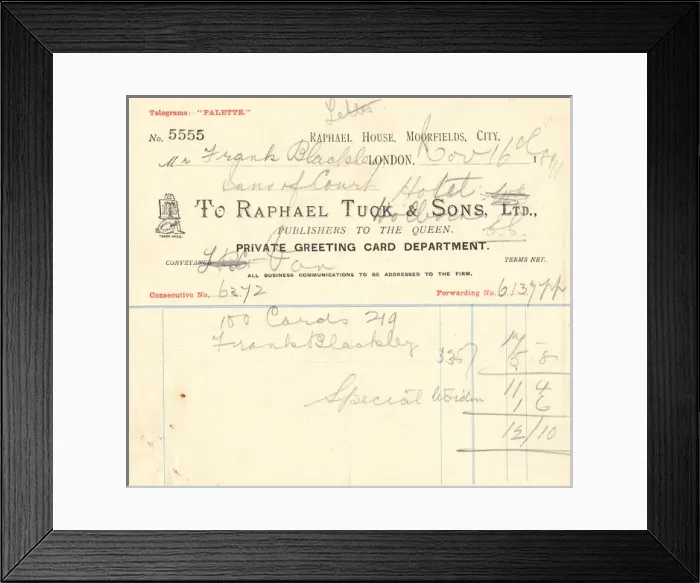 Letter
Telegrams: "PALETTE."
No. 5555
RAPHAEL HOUSE, MOORFIELDS, CITY,
Mr Frank Blackley LONDON, Nov 16th 1
Inns of Court Hotel
TO RAPHAEL TUCK & SONS, LTD.,
Holborn
TRADE MARK.
PUBLISHERS TO THE QUEEN.
PRIVATE GREETING CARD DEPARTMENT.
CONVEYANCE Van TERMS NET.
ALL BUSINESS COMMUNICATIONS TO BE ADDRESSED TO THE FIRM.
Consecutive No. 6372 Forwarding No.
100 Cards 17 -
Frank Blackley 5 8
Special 11 4
1 6
12/10